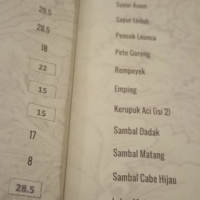 28.5
28.5
18
22
15
15
17
8
28.5
Sayur Asem
Sayur Lodeh
Pencok Leunca
Pete Goreng
Rempeyek
Emping
Kerupuk Aci (isi 2)
Sambal Dadak
Sambal Matang
Sambal Cabe Hijau